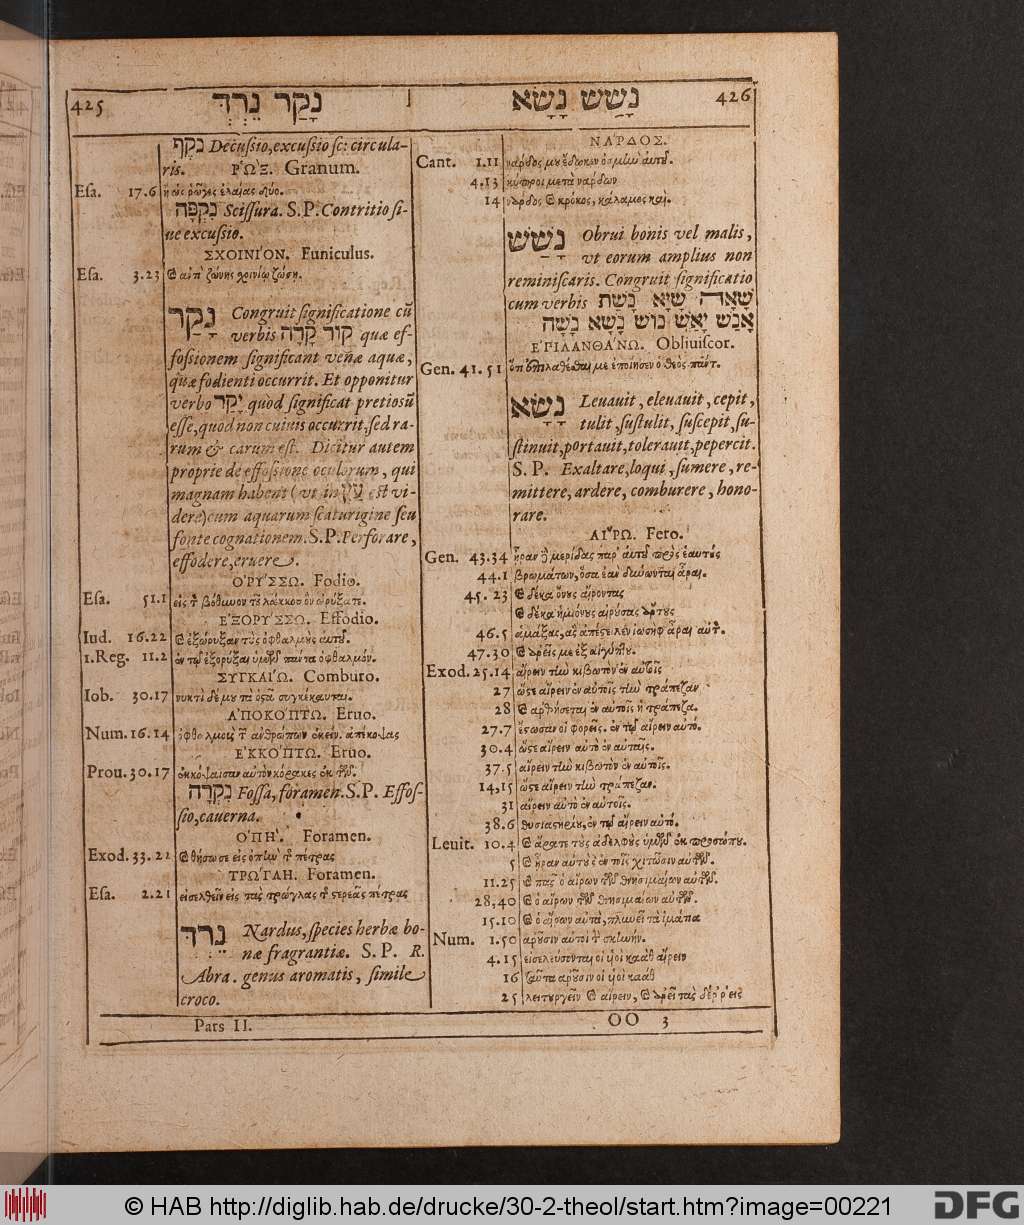 425 נָקַר נֵרְדְּ
נָשַׁשׁ נָשָׂא 426
נֹקֶף Decussio, excussio sc: circula-
ris. ῬΩ'Ξ. Granum.
Esa. 17.6 ἢ ὡς ῥῶγες ἐλαίας δύο.
נִקְפָּה Scissura. S.P. Contritio si-
ne excussio.
ΣΧΟΙΝΙ'ΟΝ. Funiculus.
Esa. 3.23
נָקַר Congruit significatione cũ
verbis קוּר קָרָה quæ ef-
fossionem significant venæ aquæ,
quæ fodienti occurrit. Et opponitur
verbo יָקַר quod significat pretiosũ
esse, quod non cuiuis occurrit, sed ra-
rum & carum est. Dicitur autem
proprie de effossione oculorum, qui
magnam habent (vt in עַיִן est vi-
dere) cum aquarum scaturigine seu
fonte cognationem. S.P. Perforare,
effodere, eruere.
ΟΡΥ'ΣΣΩ. Fodio.
Esa. 51.1 εἰς τ βόθυνον τῦ λάκκου ὃν ὠρύξατε.
ἘΞΟΡΥ'ΣΣΩ. Effodio.
Iud. 16.22 καὶ ἐξώρυξαν τοὺς ὀφθαλμοὺς αὐτοῦ.
1.Reg. 11.2 ἐν τῷ ἐξορύξαι ὑμῶν πάντα ὀφθαλμόν.
ΣΥΓΚΑΙ'Ω. Comburo.
Iob. 30.17 νυκτὶ δέ μου τὰ ὀστᾶ συγκέκαυται.
ἈΠΟΚΟ'ΠΤΩ. Eruo.
Num. 16.14 ὀφθαλμοὺς τ ἀνθρώπων ἐκείν. ἀπέκοψας
ἘΚΚΟ'ΠΤΩ. Eruo.
Prou. 30.17 ἐκκόψαισαν αὐτὸν κόρακες ἐκ τῶν.
נִקְרָה Fossa, foramen. S.P. Effos-
sio, cauerna.
ὈΠΗ'. Foramen.
Exod. 33.22 καὶ θήσω σε εἰς ὀπὴν τ πέτρας
ΤΡΩ'ΓΛΗ. Foramen.
Esa. 2.21 εἰσελθεῖν εἰς τὰς τρώγλας τ στερεᾶς πέτρας
נֵרְדְּ Nardus, species herbæ bo-
næ fragrantiæ. S.P. R.
Abra. genus aromatis, simile
croco.
Pars II.
ΝΑ'ΡΔΟΣ.
Cant. 1.11 νάρδος μου ἔδωκεν ὀσμὴν αὐτοῦ.
4.13 κύπροι μετὰ νάρδων
14 νάρδος καὶ κρόκος, κάλαμος καὶ.
נָשַׁשׁ Obrui bonis vel malis,
vt eorum amplius non
reminiscaris. Congruit significatio
cum verbis שָׁאָה שִׁיא נָשַׁת
אָנַשׁ יָאַשׁ נוּשׁ נָשָׁא נָשָׁה
ἘΠΙΛΑΝΘΑ'ΝΩ. Obliuiscor.
Gen. 41.51 ὅτι ἐπιλαθέσθαι με ἐποίησεν ὁ θεὸς πάντ.
נָשָׂא Leuauit, eleuauit, cepit,
tulit, sustulit, suscepit, su-
stinuit, portauit, tolerauit, pepercit.
S.P. Exaltare, loqui, sumere, re-
mittere, ardere, comburere, hono-
rare.
ΑΙ῎ΡΩ. Fero.
Gen. 43.34 ἦραν δὲ μερίδας παρ' αὐτοῦ πρὸς ἑαυτούς
44.1 βρωμάτων, ὅσα ἐὰν δύνωνται ἆραι.
45.23 καὶ δέκα ὄνους αἴροντας
καὶ δέκα ἡμιόνους αἰρούσας ἄρτους
46.5 ἁμάξας, ἃς ἀπέστειλεν ἰωσὴφ ἆραι αὐτ.
47.30 καὶ ἀρεῖς με ἐξ αἰγύπτου.
Exod. 25.14 αἴρειν τὴν κιβωτὸν ἐν αὐτοῖς
27 ὥστε αἴρειν ἐν αὐτοῖς τὴν τράπεζαν
28 καὶ ἀρθήσεται ἐν αὐτοῖς ἡ τράπεζα.
27.7 ἔστωσαν οἱ φορεῖς. ἐν τῷ αἴρειν αὐτό.
30.4 ὥστε αἴρειν αὐτὸ ἐν αὐταῖς.
37.5 αἴρειν τὴν κιβωτὸν ἐν αὐτοῖς.
14,15 ὥστε αἴρειν τὴν τράπεζαν.
31 αἴρειν αὐτὸ ἐν αὐτοῖς.
38.6 θυσιαστηρίου, ἐν τῷ αἴρειν αὐτό.
Leuit. 10.4 καὶ ἄρατε τοὺς ἀδελφοὺς ὑμῶν ἐκ προσώπου.
5 καὶ ἦραν αὐτοὺς ἐν τοῖς χιτῶσιν αὐτῶν.
11.25 καὶ πᾶς ὁ αἴρων τῶν θνησιμαίων αὐτῶν.
28,40 καὶ ὁ αἴρων τῶν θνησιμαίων αὐτῶν.
15.10 καὶ ὁ αἴρων αὐτὰ, πλυνεῖ τὰ ἱμάτια
Num. 1.50 ἀροῦσιν αὐτοὶ τ σκηνήν.
4.15 εἰσελεύσονται οἱ υἱοὶ κααθ αἴρειν
16 ταῦτα ἀροῦσιν οἱ υἱοὶ κααθ
25 λειτουργεῖν καὶ αἴρειν, καὶ ἀρεῖ τὰς δέρρεις
OO 3
© HAB http://diglib.hab.de/drucke/30-2-theol/start.htm?image=00221
DFG